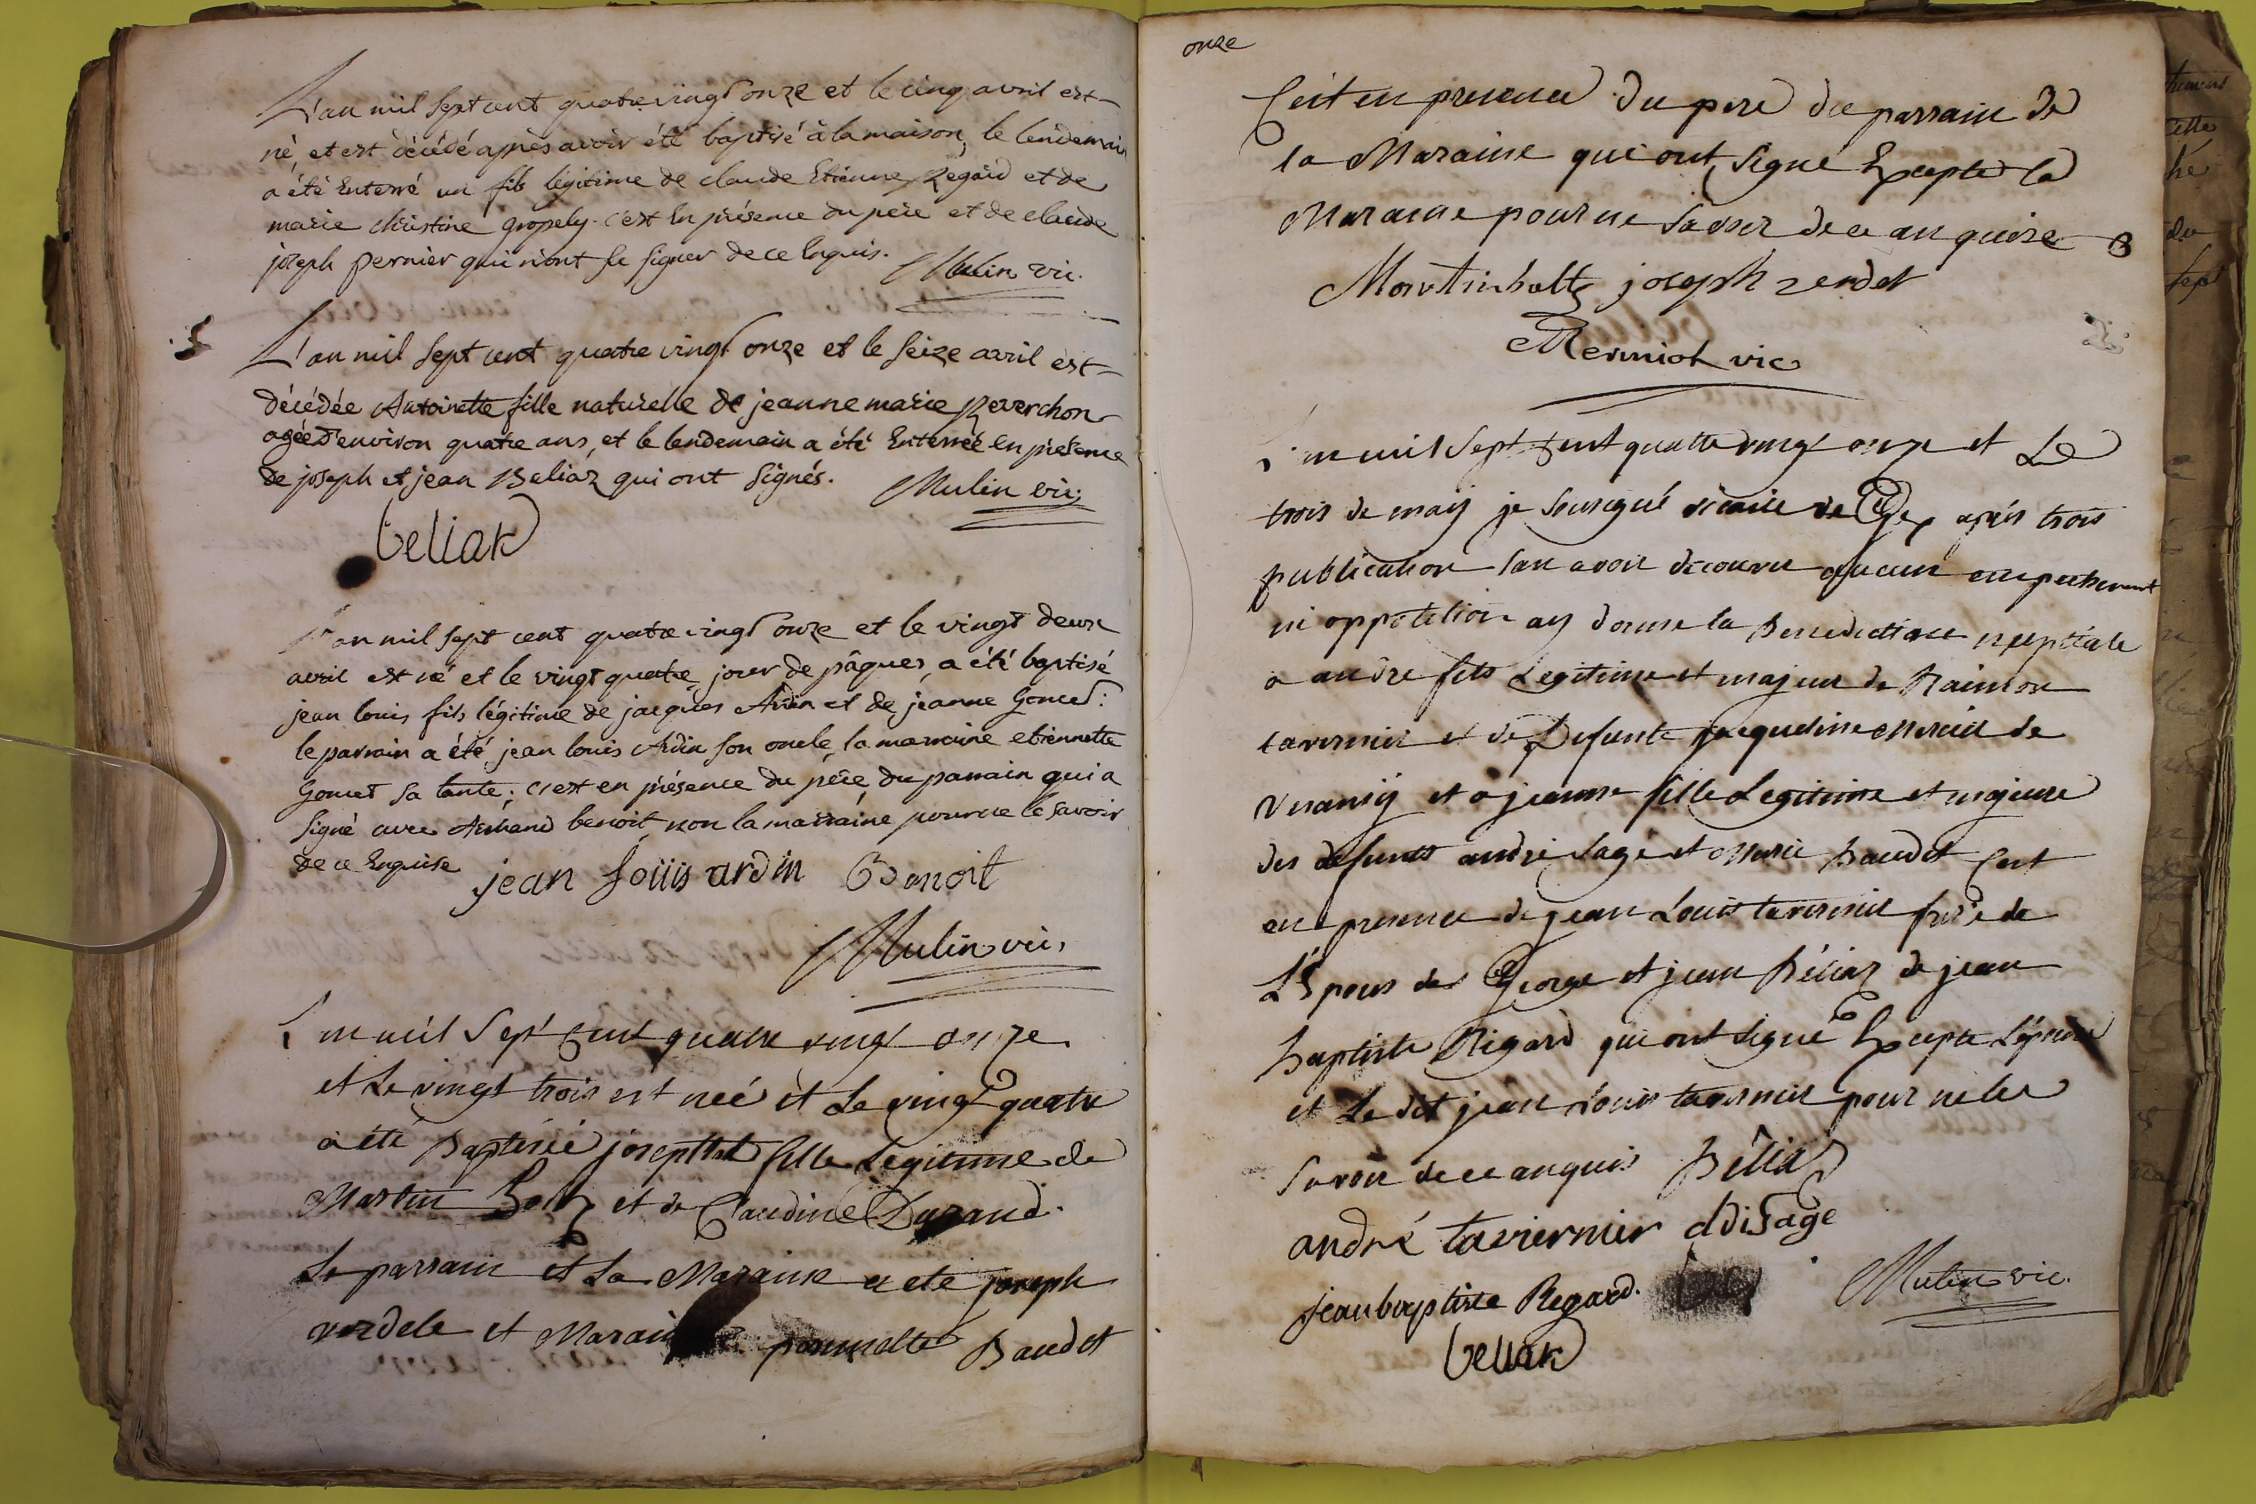 L'an mil sept cent quatre vingt onze et le cinq avril est
né, et est décédé après avoir été baptisé à la maison, le lendemain
a été Enterré un fils légitime de claude Etienne Regard et de
marie christine gropely. c'est En présence du père et de claude
joseph pernier qui n'ont su signer de ce Enquis.
Mulin vic.
L'an mil sept cent quatre vingt onze et le seize avril est
décédée Antoinette fille naturelle de jeanne marie Reverchon
agée d'environ quatre ans, et le lendemain a été Enterrée en présence
de joseph et jean Beliaz qui ont signés.
Mulin vic
beliak
L'an mil sept cent quatre vingt onze et le vingt deux
avril est né et le vingt quatre jour de pâques, a été baptisé
jean louis fils légitime de jacques Ardin et de jeanne Goncet:
le parrain a été jean louis Ardin son oncle, la marraine etiennette
Goncet sa tante; c'est en présence du père du parrain qui a
signé avec benoit, non la marraine pour ne le savoir
de ce Enquise
jean louis ardin Benoit
Mulin vic,
L'an mil Sept Cent quatre vingt onze
et Le vingt trois est neé et Le vingt quatre
a été Baptisée josephte fille Legitime de
Martin Boltz et de Claudine Durand.
Le parrain et La Maraine a ete joseph
verdele et pernette Baudet
onze
C'est en presence du pere du parrain de
la Maraine qui ont Signe Excepte la
Maraine pour ne Savoir de ce anquise
Martin boltz joseph verdet
Mermiot vic
L'an mil Sept Cent quatre vingt onze et Le
trois de may je sousigné vicaire de Gex après trois
publication san avoir decouvert aucun empechement
ni oppotition ay donne la Benediction nuptiale
a andre fils Legitime et majeur de Raimon
tavernier et de Defunte jacqueline Mercier de
Veransÿ et a jeanne fille Legitime et majeure
des defunts andre Sage et Marie Baudet C'est
en presence de jean Louis tavernier frere de
L'Epoux de George et jean Béliaz de jean
Baptiste Régard qui ont Signé Excepte L'épouse
et Le dit jean Louis tavernier pour ne les
Savoir de ce anquis Béliaz
andré taviernier
jean baptiste Regard.
Mulin vic.
beliak